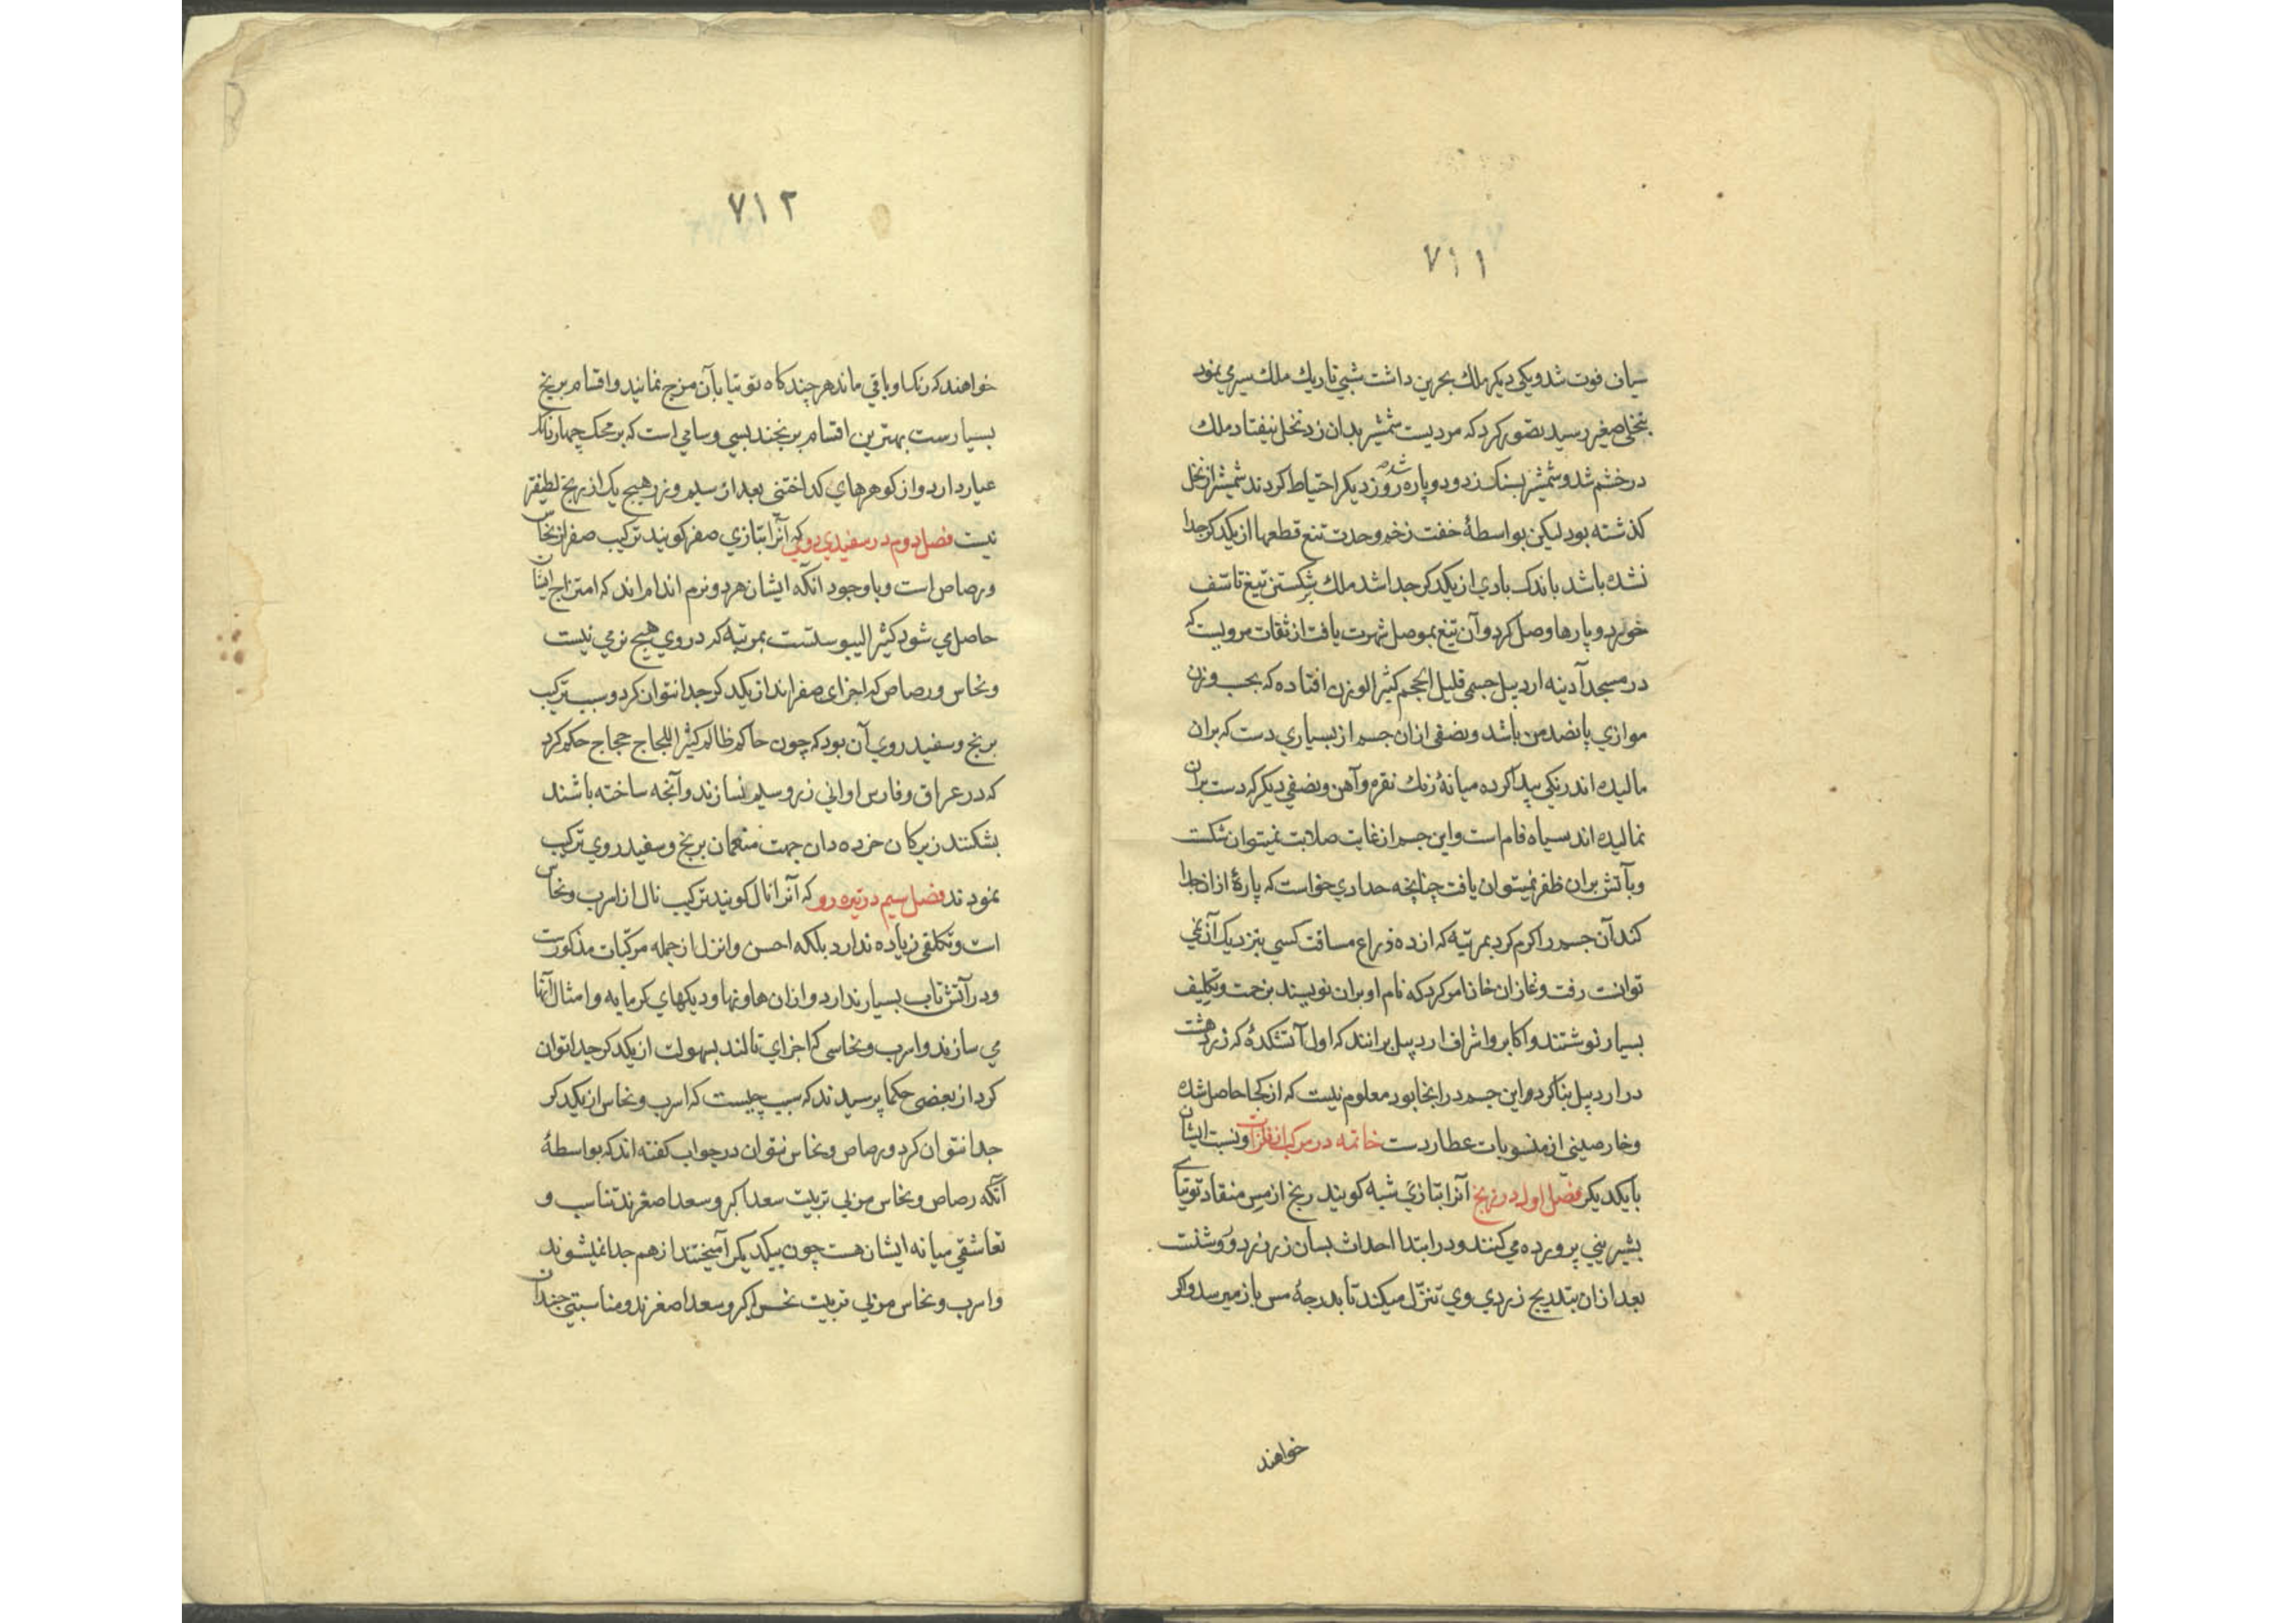 ۷۱۱
میان فوت شد ویکی دیکر ملك بحرین داشت شبی تاریك ملك سیری نمود
بنخلی صغیر رسید تصور کرد که مردیست شمشیر بدان زد نخل نیفتاد ملك
درخشم شد وشمشیر بسنك زد ودوپاره شد روز دیکر احتیاط کردند شمشیر از نخل
کذشته بود لیکن بواسطهٔ خفت زخم وحدت تیغ قطعها از یکدکر جدا
نشده باشد باندك بادی از یکدکر جدا شد ملك بر شکستن تیغ تاسف
خورد وپارها وصل کرد وآن تیغ بموصل شهرت یافت از ثقات مرویست که
در مسجد آدینه اردبیل جسمی قلیل الحجم کثیر الوزن افتاده که بحسب وزن
موازی پانصد من باشد ونصفی ازان جسم از بسیاری دست که بران
مالیده اند رنکی پیدا کرده میانهٔ رنك نقره وآهن ونصفی دیکر که دست بران
نمالیده اند سیاه فام است واین جسم از غایت صلابت نمیتوان شکست
وبآتش بران ظفر نمیتوان یافت چنانچه حدادی خواست که پارهٔ ازان جدا
کند آن جسم را کرم کرد بمرتبهٔ که از ده ذراع مسافت کسی بنزدیك آن نمی
توانست رفت وغازان خان امر کرد که نام او بران نویسند بزحمت وتکلیف
بسیار نوشتند واکابر واشراف اردبیل برانند که اول آتشکدهٔ که زردهشت
در اردبیل بنا کرد واین جسم در انجا بود معلوم نیست که از کجا حاصل شده
وخارصینی از منسوبات عطاردست خاتمه در مرکبات فلزات ونسبت ایشان
بایکدیکر فصل اول در برنج آنرا بتازی شبه کویند برنج از مس منقاد توتیای
بشیرینی پرورده می کنند ودر ابتدا احداث بسان زر زرد وروشنست
بعد ازان بتدریج زردی وی تنزل میکند تا بدرجهٔ مس باز میرسد واکر
خواهند
۷۱۲
خواهند که رنك او باقی ماند هر چند کاه توتیا بآن مزج نمایند واقسام برنج
بسیارست بهترین اقسام برنجند بسی وسامی است که بر محك چهار دانك
عیار دارد واز کوهرهای کداختنی بعد از سیم وزر هیچ یك از برنج لطیفتر
نیست فصل دوم در سفیدی روی که آنرا بتازی صفر کویند ترکیب صفر از نحاس
ورصاص است وبا وجود آنکه ایشان هر دو نرم اندام اند که امتزاج ایشان
حاصل می شود کثیر الیبوستست بمرتبهٔ که در وی هیچ نرمی نیست
ونحاس ورصاص که اجزای صفراند از یکدکر جدا نتوان کرد وسبب ترکیب
برنج وسفید روی آن بود که چون حاکم ظالم کثیر اللجاج حجاج حکم کرد
که در عراق وفارس اوانی زر وسیم نسازند وآنچه ساخته باشند
بشکنند زیرکان خرده دان جهت منعمان برنج وسفید روی ترکیب
نمودند فصل سیم در تیره رو که آنرا نال کویند ترکیب نال از اسرب ونحاس
است وتکلفی زیاده ندارد بلکه احسن وانزل از جمله مرکبات مذکورست
ودر آتش تاب بسیار ندارد وازان هاونها ودیکهای کرمابه وامثال آنها
می سازند واسرب ونحاسی که اجزای تالند بسهولت از یکدکر جدا توان
کرد از بعضی حکما پرسیدند که سبب چیست که اسرب ونحاس از یکدکر
جدا نتوان کرد ورصاص ونحاس نتوان در جواب کفته اند که بواسطهٔ
آنکه رصاص ونحاس مزبی تربیت سعد اکبر وسعد اصغرند تناسب و
تعاشقی میانه ایشان هست چون بیکدیکر آمیختند از هم جدا نمیشوند
واسرب ونحاس مزبی تربیت نحس اکبر وسعد اصغرند ومناسبتی چندان